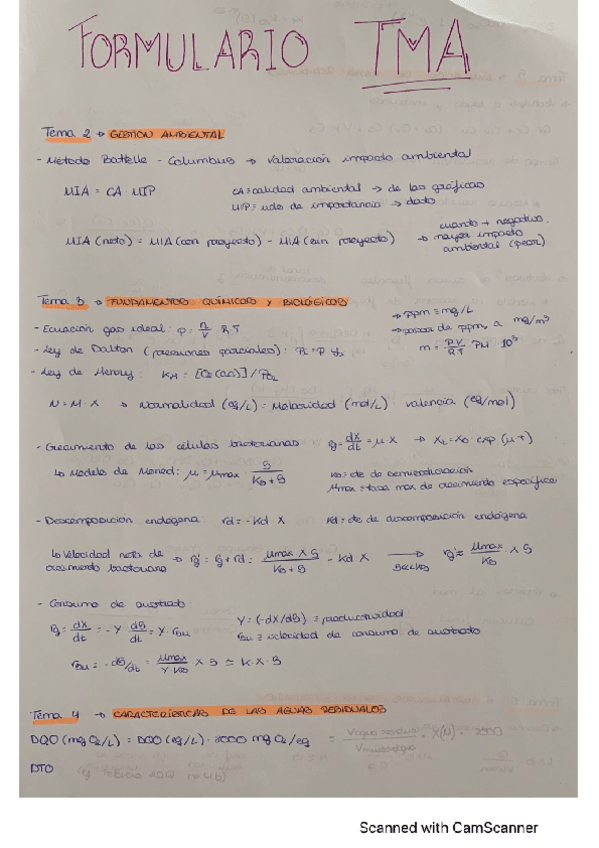 FORMULARIO TMA
Tema 2 → GESTIÓN AMBIENTAL
- Método Battelle - Columbus → valoración impacto ambiental
MIA = CA · UIP
CA = calidad ambiental → de las gráficas
UIP = uds de importancia → dato
MIA (neto) = MIA (con proyecto) - MIA (sin proyecto)
→ cuanto + negativo.
mayor impacto
ambiental (peor)
Tema 3 → FUNDAMENTOS QUÍMICOS Y BIOLÓGICOS
- Ecuación gas ideal: p = n/V R T
→ ppm = mg/L
→ pasar de ppmv a mg/m³
- Ley de Dalton (presiones parciales):
m = PV/RT PM · 10³
- Ley de Henry: KH = [O2(aq)] / PO2
N = M · X → Normalidad (eq/L) = Molaridad (mol/L) · valencia (eq/mol)
- Crecimiento de las células bacterianas rg = dX/dt = μ · X → Xt = X0 · exp (μ t)
↳ Modelo de Monod: μ = μmax S / KS + S
KS = cte de semisaturación
μmax = tasa max de crecimiento específica
- Descomposición endógena rd = - Kd X Kd = cte de descomposición endógena
↳ Velocidad neta de
crecimiento bacteriano
→ rg' = rg + rd = μmax X S / KS + S - Kd X → S<<KS rg' ≈ μmax / KS X S
- Consumo de sustrato:
rg = dX/dt = - Y dS/dt = Y · rsu
Y = (-dX/dS) = productividad
rsu = velocidad de consumo de sustrato
rsu = - dS/dt = μmax / Y KS X S ≃ K · X · S
Tema 4 → CARACTERÍSTICAS DE LAS AGUAS RESIDUALES
DQO (mg O2/L) = DQO (eq/L) · 8000 mg O2/eq = · X(N) · 8000
DTO
Scanned with CamScanner